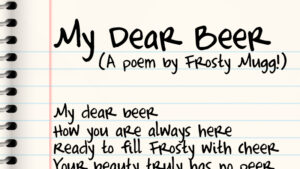 My Dear Beer
(A poem by Frosty Mugg!)
My dear beer
How you are always here
Ready to fill Frosty with cheer
Your beauty truly has no peer